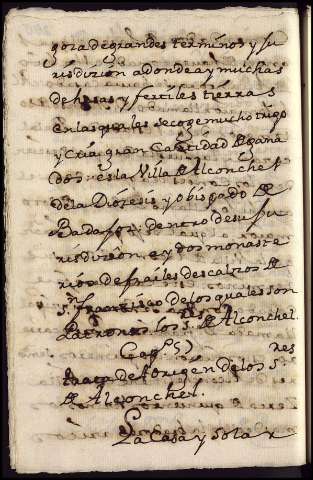 gora de grandes terminos y Ju
risdizion a donde ay muchas
dehesas y fertiles tierras
en las quales se coge mucho trigo
y cria gran Cantidad de gana
dos es la Villa de Alconchel
de la Diozesis y obispado de
Badajoz dentro de su Ju
risdizion ay dos monaste
rios de frailes descalzos de
s.n francisco de los quales son
Patronos los s.res de Alconchel.
Cap.º 5º
trata del origen de los s.res
de Alconchel.
La Casa y solar